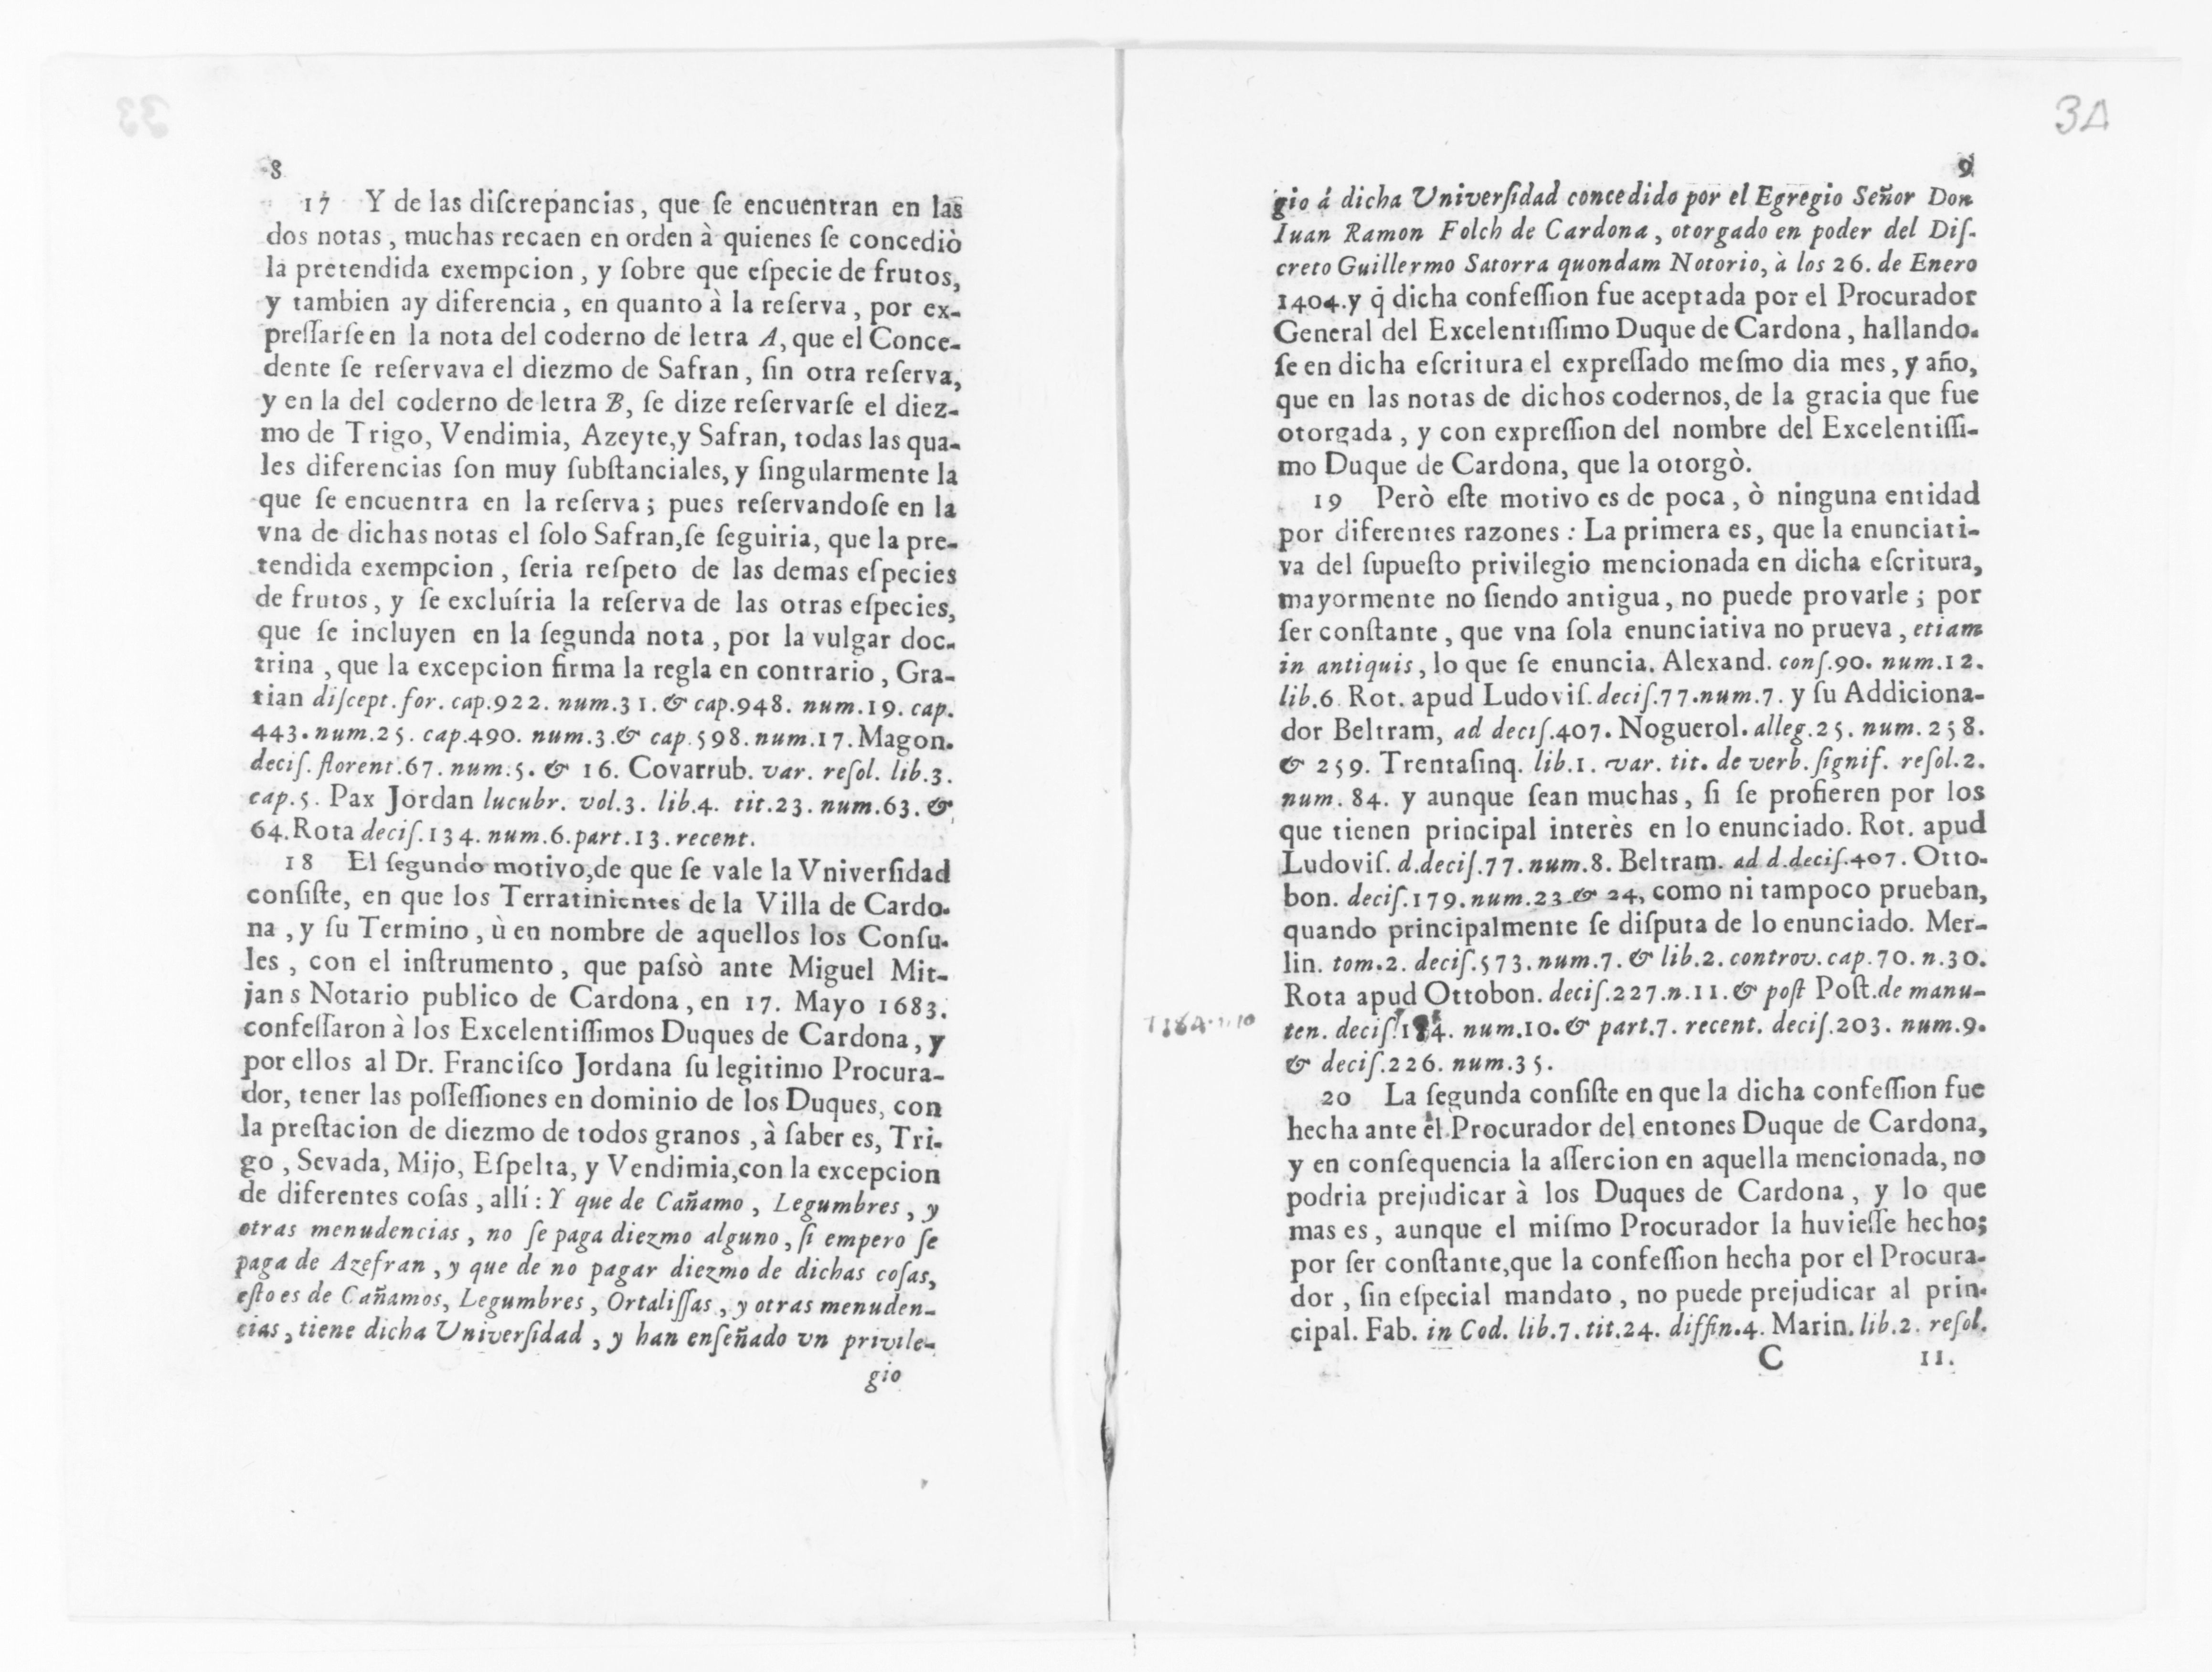 8
17 Y de las diſcrepancias, que ſe encuentran en las
dos notas, muchas recaen en orden à quienes ſe concediò
la pretendida exempcion, y ſobre que eſpecie de frutos,
y tambien ay diferencia, en quanto à la reſerva, por ex-
preſſarſe en la nota del coderno de letra A, que el Conce-
dente ſe reſervava el diezmo de Safran, ſin otra reſerva,
y en la del coderno de letra B, ſe dize reſervarſe el diez-
mo de Trigo, Vendimia, Azeyte,y Safran, todas las qua-
les diferencias ſon muy ſubſtanciales, y ſingularmente la
que ſe encuentra en la reſerva; pues reſervandoſe en la
vna de dichas notas el ſolo Safran,ſe ſeguiria, que la pre-
tendida exempcion, ſeria reſpeto de las demas eſpecies
de frutos, y ſe excluíria la reſerva de las otras eſpecies,
que ſe incluyen en la ſegunda nota, por la vulgar doc-
trina, que la excepcion firma la regla en contrario, Gra-
tian diſcept. for. cap.922. num.31. & cap.948. num.19. cap.
443. num.25. cap.490. num.3.& cap.598.num.17.Magon.
deciſ. florent.67. num.5. & 16. Covarrub. var. reſol. lib.3.
cap.5. Pax Jordan lucubr. vol.3. lib.4. tit.23. num.63. &
64.Rota deciſ.134. num.6.part.13.recent.
18 El ſegundo motivo,de que ſe vale la Vniverſidad
conſiſte, en que los Terratinientes de la Villa de Cardo-
na, y ſu Termino, ù en nombre de aquellos los Conſu-
les, con el inſtrumento, que paſsò ante Miguel Mit-
jans Notario publico de Cardona, en 17. Mayo 1683.
confeſſaron à los Excelentiſſimos Duques de Cardona, y
por ellos al Dr. Franciſco Jordana ſu legitimo Procura-
dor, tener las poſſeſſiones en dominio de los Duques, con
la preſtacion de diezmo de todos granos, à ſaber es, Tri-
go, Sevada, Mijo, Eſpelta, y Vendimia,con la excepcion
de diferentes coſas, allí: Y que de Cañamo, Legumbres, y
otras menudencias, no ſe paga diezmo alguno, ſi empero ſe
paga de Azefran, y que de no pagar diezmo de dichas coſas,
eſto es de Cañamos, Legumbres, Ortaliſſas, y otras menuden-
cias, tiene dicha Univerſidad, y han enſeñado vn privile-
gio
34
9
gio á dicha Univerſidad concedido por el Egregio Señor Don
Iuan Ramon Folch de Cardona, otorgado en poder del Diſ-
creto Guillermo Satorra quondam Notorio, à los 26. de Enero
1404.y q̃ dicha confeſſion fue aceptada por el Procurador
General del Excelentiſſimo Duque de Cardona, hallando-
ſe en dicha eſcritura el expreſſado meſmo dia mes, y año,
que en las notas de dichos codernos, de la gracia que fue
otorgada, y con expreſſion del nombre del Excelentiſſi-
mo Duque de Cardona, que la otorgò.
19 Però eſte motivo es de poca, ò ninguna entidad
por diferentes razones: La primera es, que la enunciati-
va del ſupueſto privilegio mencionada en dicha eſcritura,
mayormente no ſiendo antigua, no puede provarle; por
ſer conſtante, que vna ſola enunciativa no prueva, etiam
in antiquis, lo que ſe enuncia. Alexand. conſ.90. num.12.
lib.6. Rot. apud Ludoviſ.deciſ.77.num.7. y ſu Addiciona-
dor Beltram, ad deciſ.407. Noguerol. alleg.25. num. 258.
& 259. Trentaſinq. lib.1. var. tit. de verb. ſignif. reſol.2.
num. 84. y aunque ſean muchas, ſi ſe profieren por los
que tienen principal interès en lo enunciado. Rot. apud
Ludoviſ. d.deciſ.77.num.8. Beltram. ad d.deciſ.407. Otto-
bon. deciſ.179.num.23.& 24, como ni tampoco prueban,
quando principalmente ſe diſputa de lo enunciado. Mer-
lin. tom.2. deciſ.573.num.7. & lib.2. controv. cap.70. n.30.
Rota apud Ottobon. deciſ.227.n.11.& poſt Poſt.de manu-
ten. deciſ.184. num.10. & part.7. recent. deciſ.203. num.9.
& deciſ.226. num.35.
20 La ſegunda conſiſte en que la dicha confeſſion fue
hecha ante el Procurador del entones Duque de Cardona,
y en conſequencia la aſſercion en aquella mencionada, no
podria prejudicar à los Duques de Cardona, y lo que
mas es, aunque el miſmo Procurador la huvieſſe hecho;
por ſer conſtante,que la confeſſion hecha por el Procura-
dor, ſin eſpecial mandato, no puede prejudicar al prin-
cipal. Fab. in Cod. lib.7. tit.24. diffin.4. Marin. lib.2. reſol.
C 11.